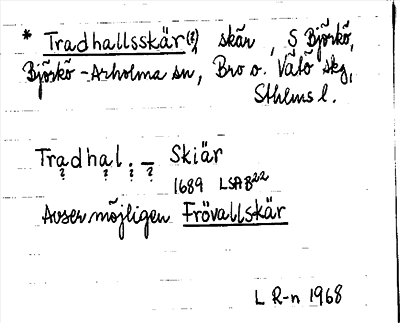 * Tradhallsskär(?), skär, S Björkö,
Björkö-Arholma sn, Bro o. Vätö skg,
Sthlms l.
Tradhal. – Skiär
? ? ? ?
1689 LSA B22
Avser möjligen Frövallskär
L R-n 1968